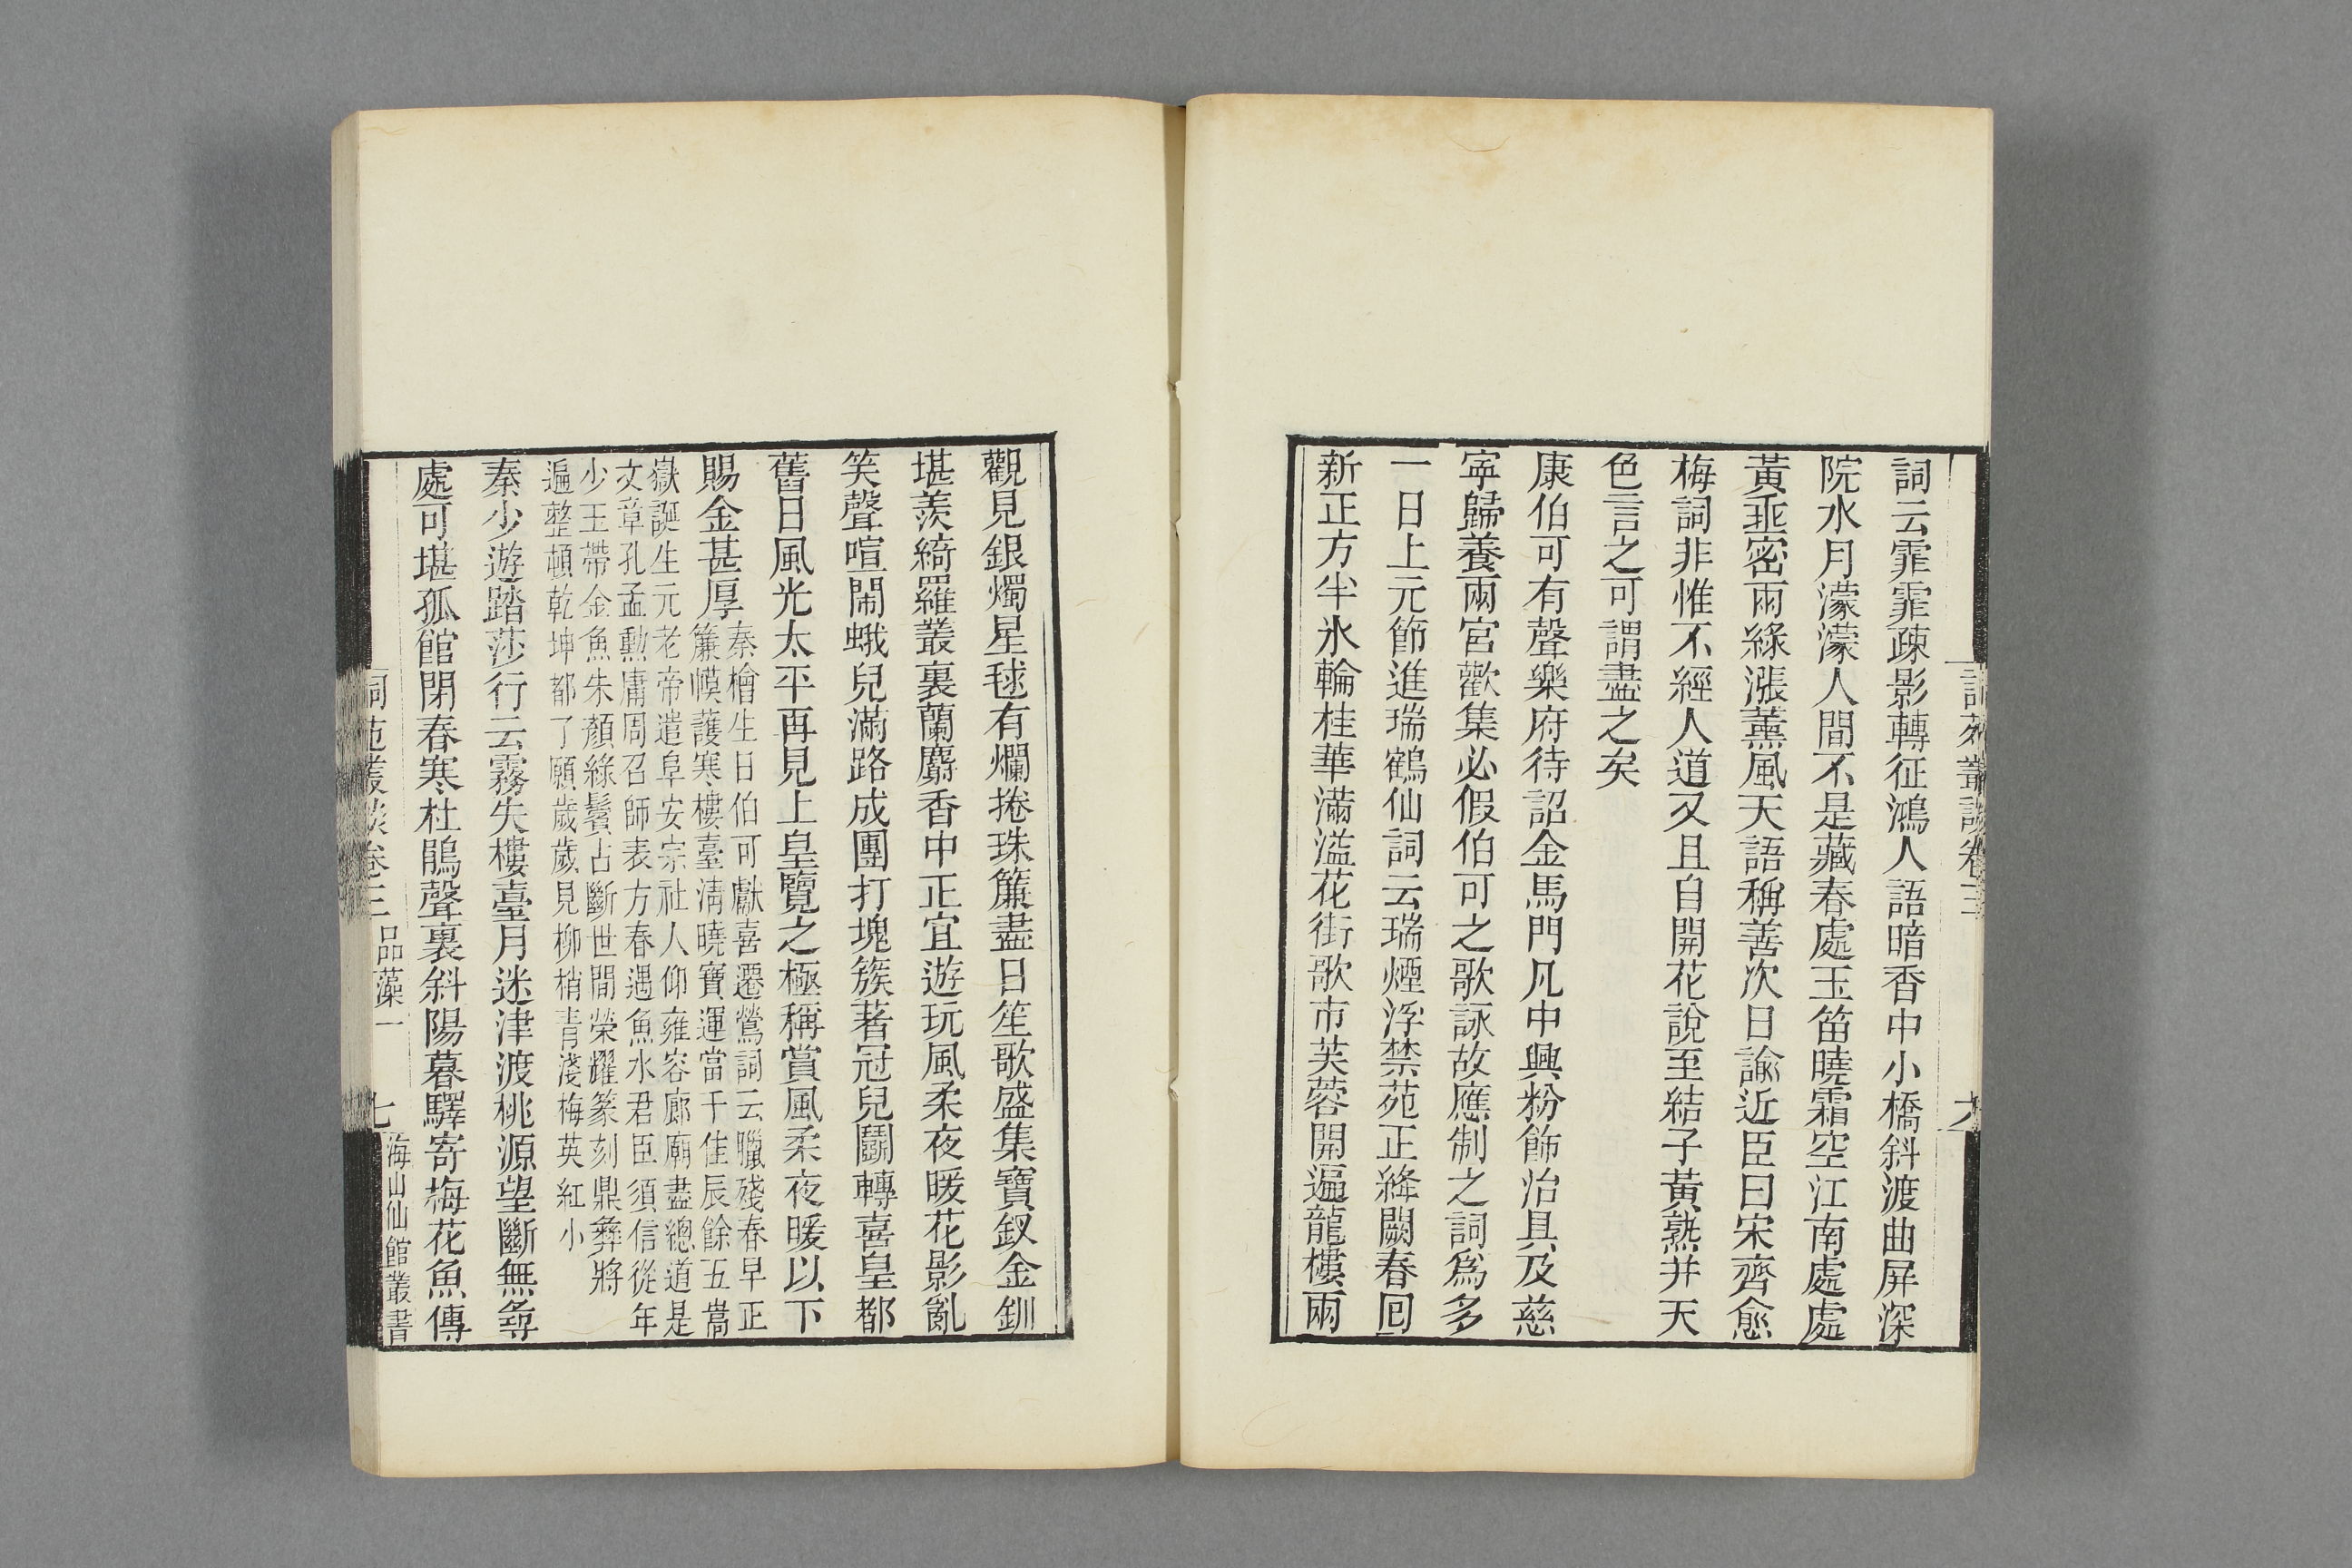 詞云霏霏疎影轉征鴻人語暗香中小橋斜渡曲屏深
院水月濛濛人間不是藏春處玉笛曉霜空江南處處
黃垂密雨綠漲薰風天語稱善次日諭近臣曰宋齊愈
梅詞非惟不經人道又且自開花說至結子黃熟并天
色言之可謂盡之矣
康伯可有聲樂府待詔金馬門凡中興粉飾治具及慈
寧歸養兩宮歡集必假伯可之歌詠故應制之詞為多
一日上元節進瑞鶴仙詞云瑞煙浮禁苑正絳闕春回
新正方半氷輪桂華滿溢花街歌市芙蓉開遍龍樓兩
觀見銀燭星毬有爛捲珠簾盡日笙歌盛集寶釵金釧
堪羨綺羅叢裏蘭麝香中正宜遊玩風柔夜暖花影亂
笑聲喧鬧蛾兒滿路成團打塊簇著冠兒鬬轉喜皇都
舊日風光太平再見上皇覽之極稱賞風柔夜暖以下
賜金甚厚
秦檜生日伯可獻喜遷鶯詞云臘殘春早正
簾幙護寒樓臺清曉寶運當千佳辰餘五嵩
嶽誕生元老帝遣阜安宗社人仰雍容廊廟盡總道是
文章孔孟勳庸周召師表方春遇魚水君臣須信從年
少玉帶金魚朱顏綠鬢占斷世間榮耀篆刻鼎彝將
遍整頓乾坤都了願歲歲見柳梢青淺梅英紅小
秦少遊踏莎行云霧失樓臺月迷津渡桃源望斷無尋
處可堪孤館閉春寒杜鵑聲裏斜陽暮驛寄梅花魚傳
詞苑叢談卷三 品藻一 七 海山仙館叢書